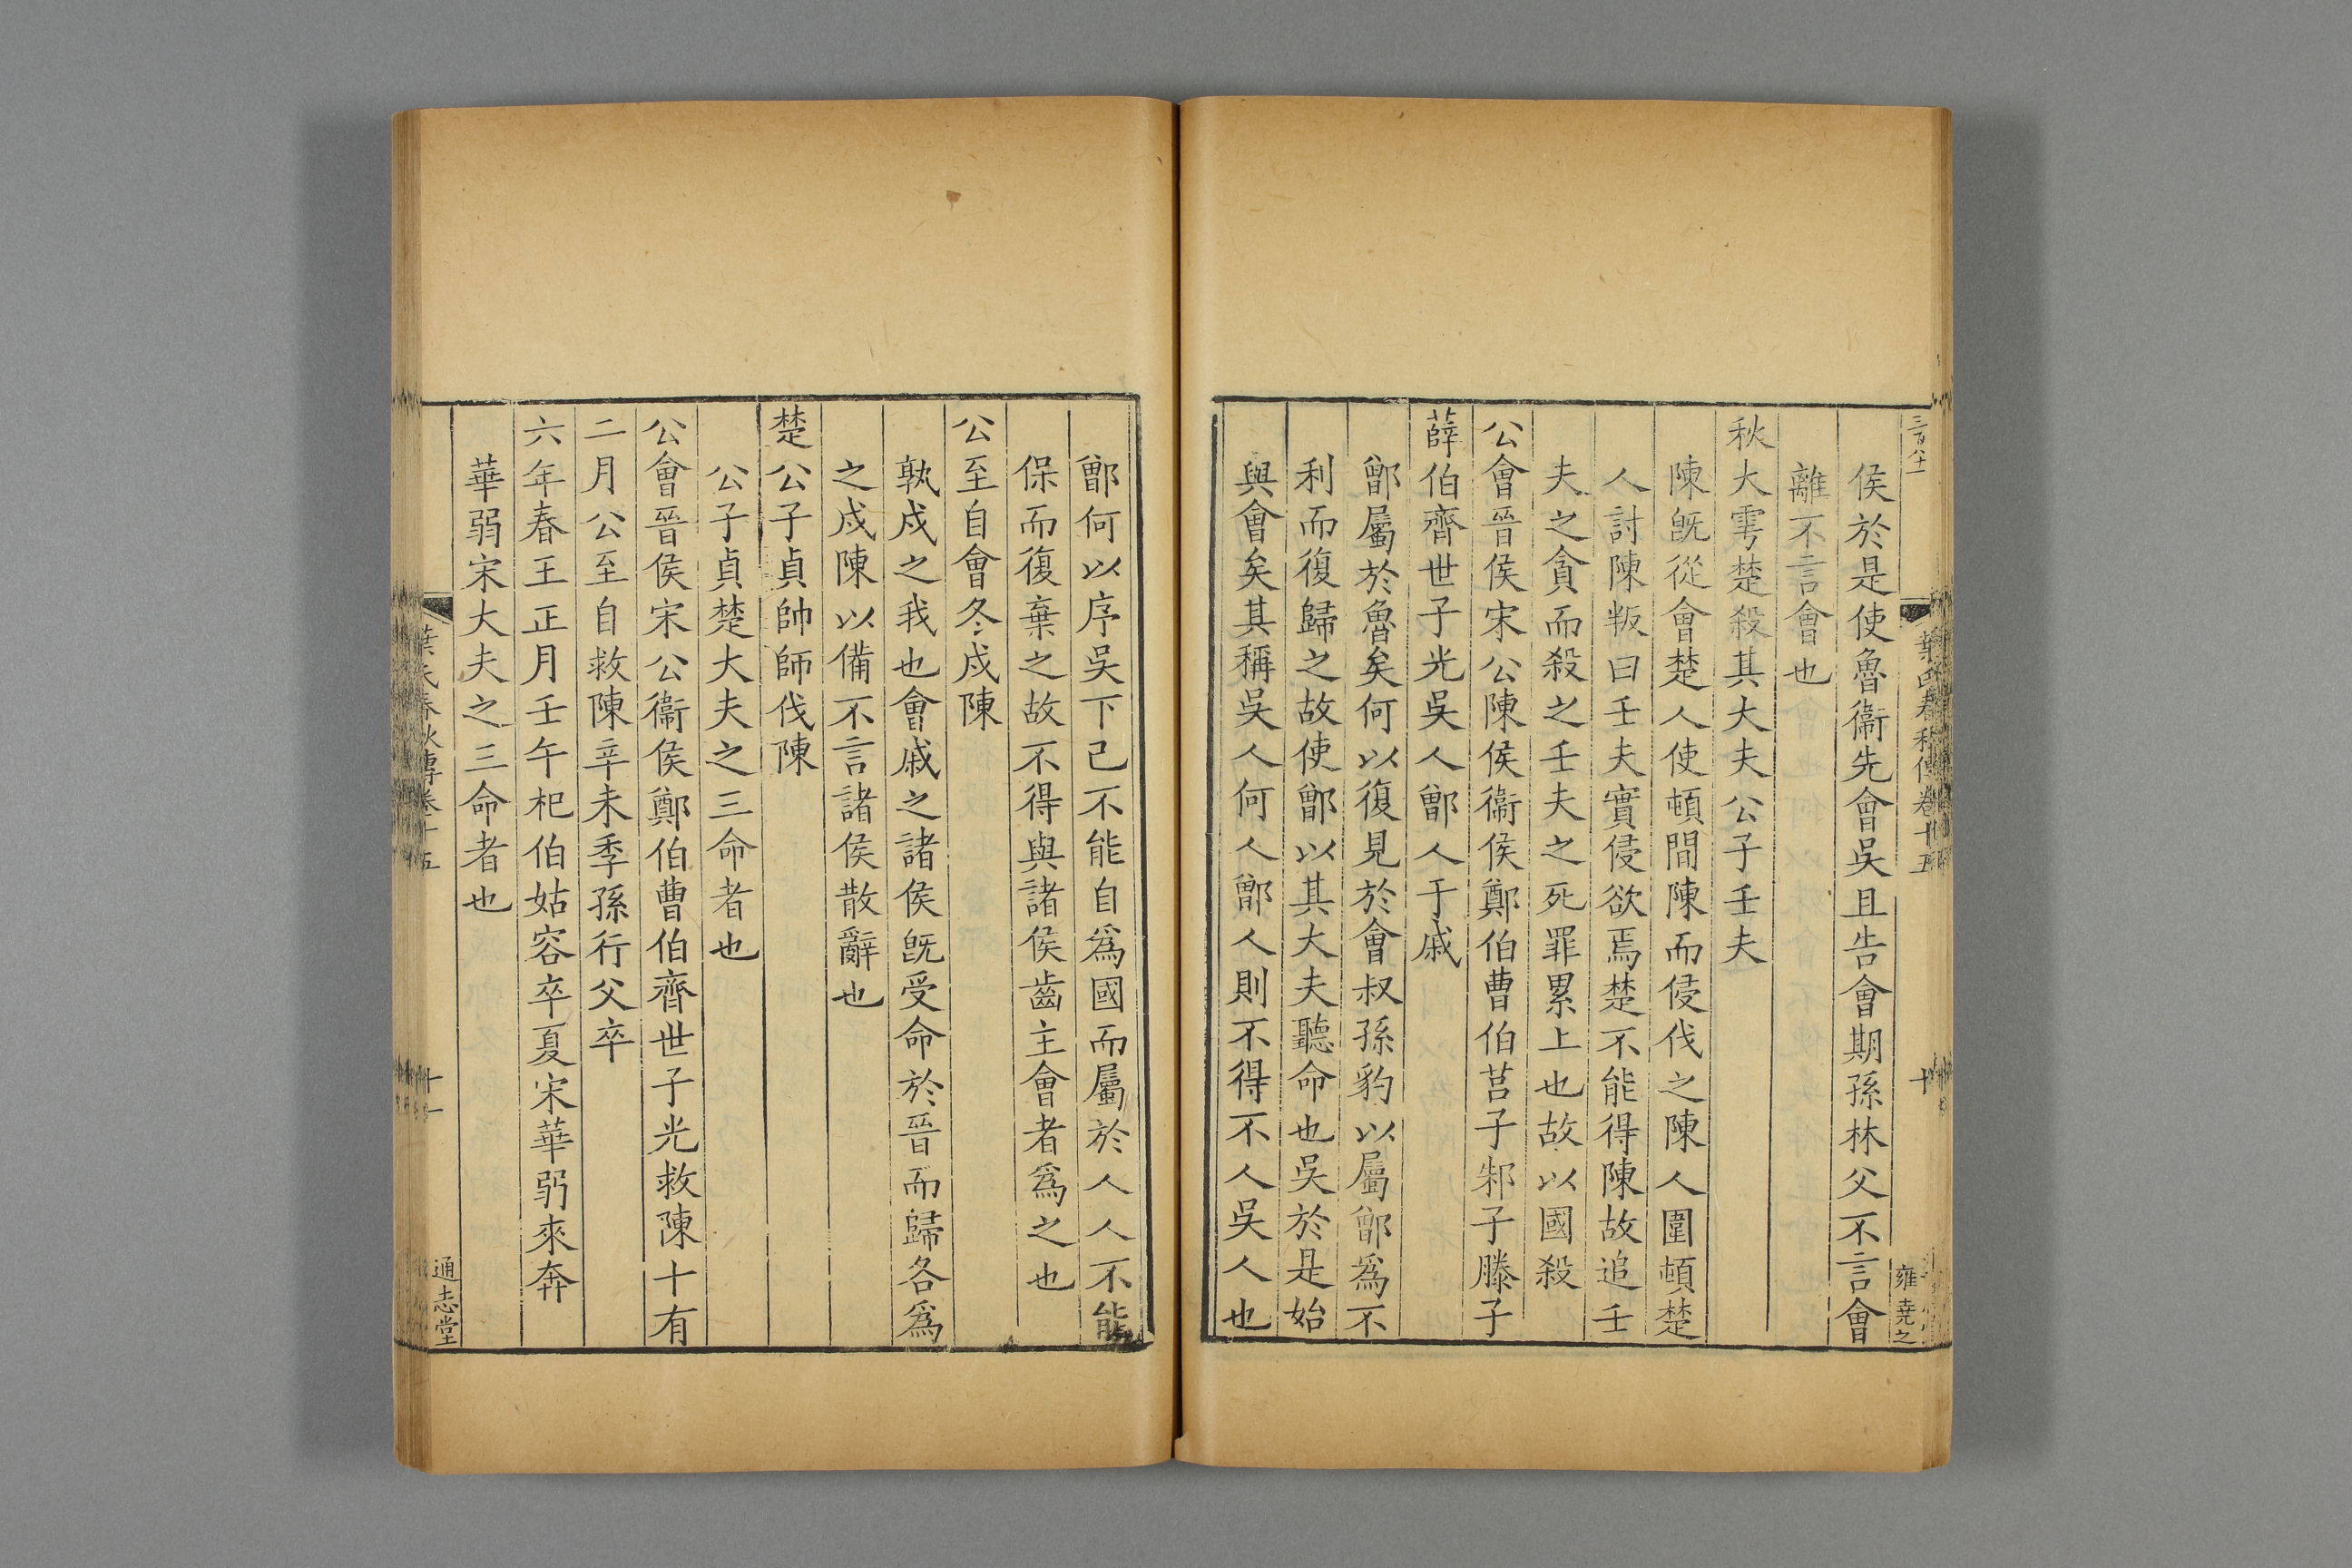 侯於是使魯衞先會吳且告會期孫林父不言會
離不言會也
秋大雩楚殺其大夫公子壬夫
陳旣從會楚人使頓間陳而侵伐之陳人圍頓楚
人討陳叛曰壬夫實侵欲焉楚不能得陳故追壬
夫之貪而殺之壬夫之死罪累上也故以國殺
公會晉侯宋公陳侯衞侯鄭伯曹伯莒子邾子滕子
薛伯齊世子光吳人鄫人于戚
鄫屬於魯矣何以復見於會叔孫豹以屬鄫爲不
利而復歸之故使鄫以其大夫聽命也吳於是始
與會矣其稱吳人何人鄫人則不得不人吳人也
鄫何以序吳下已不能自爲國而屬於人人不能
保而復棄之故不得與諸侯齒主會者爲之也
公至自會冬戍陳
孰戍之我也會戚之諸侯旣受命於晉而歸各爲
之戍陳以備不言諸侯散辭也
楚公子貞帥師伐陳
公子貞楚大夫之三命者也
公會晉侯宋公衞侯鄭伯曹伯齊世子光救陳十有
二月公至自救陳辛未季孫行父卒
六年春王正月壬午杞伯姑容卒夏宋華弱來奔
華弱宋大夫之三命者也
葉氏春秋傳卷十五
十一
通志堂